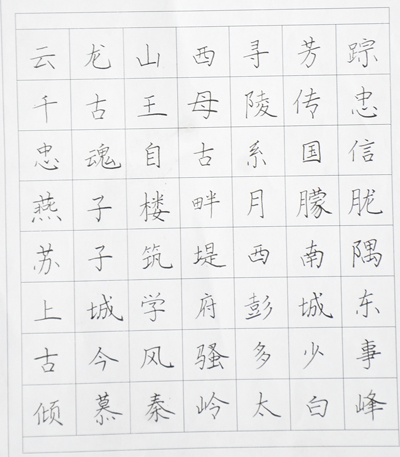 云龙山西寻芳踪
千古王母陵传忠
忠魂自古系国信
燕子楼畔月朦胧
苏子筑堤西南隅
上城学府彭城东
古今风骚多少事
倾慕秦岭太白峰